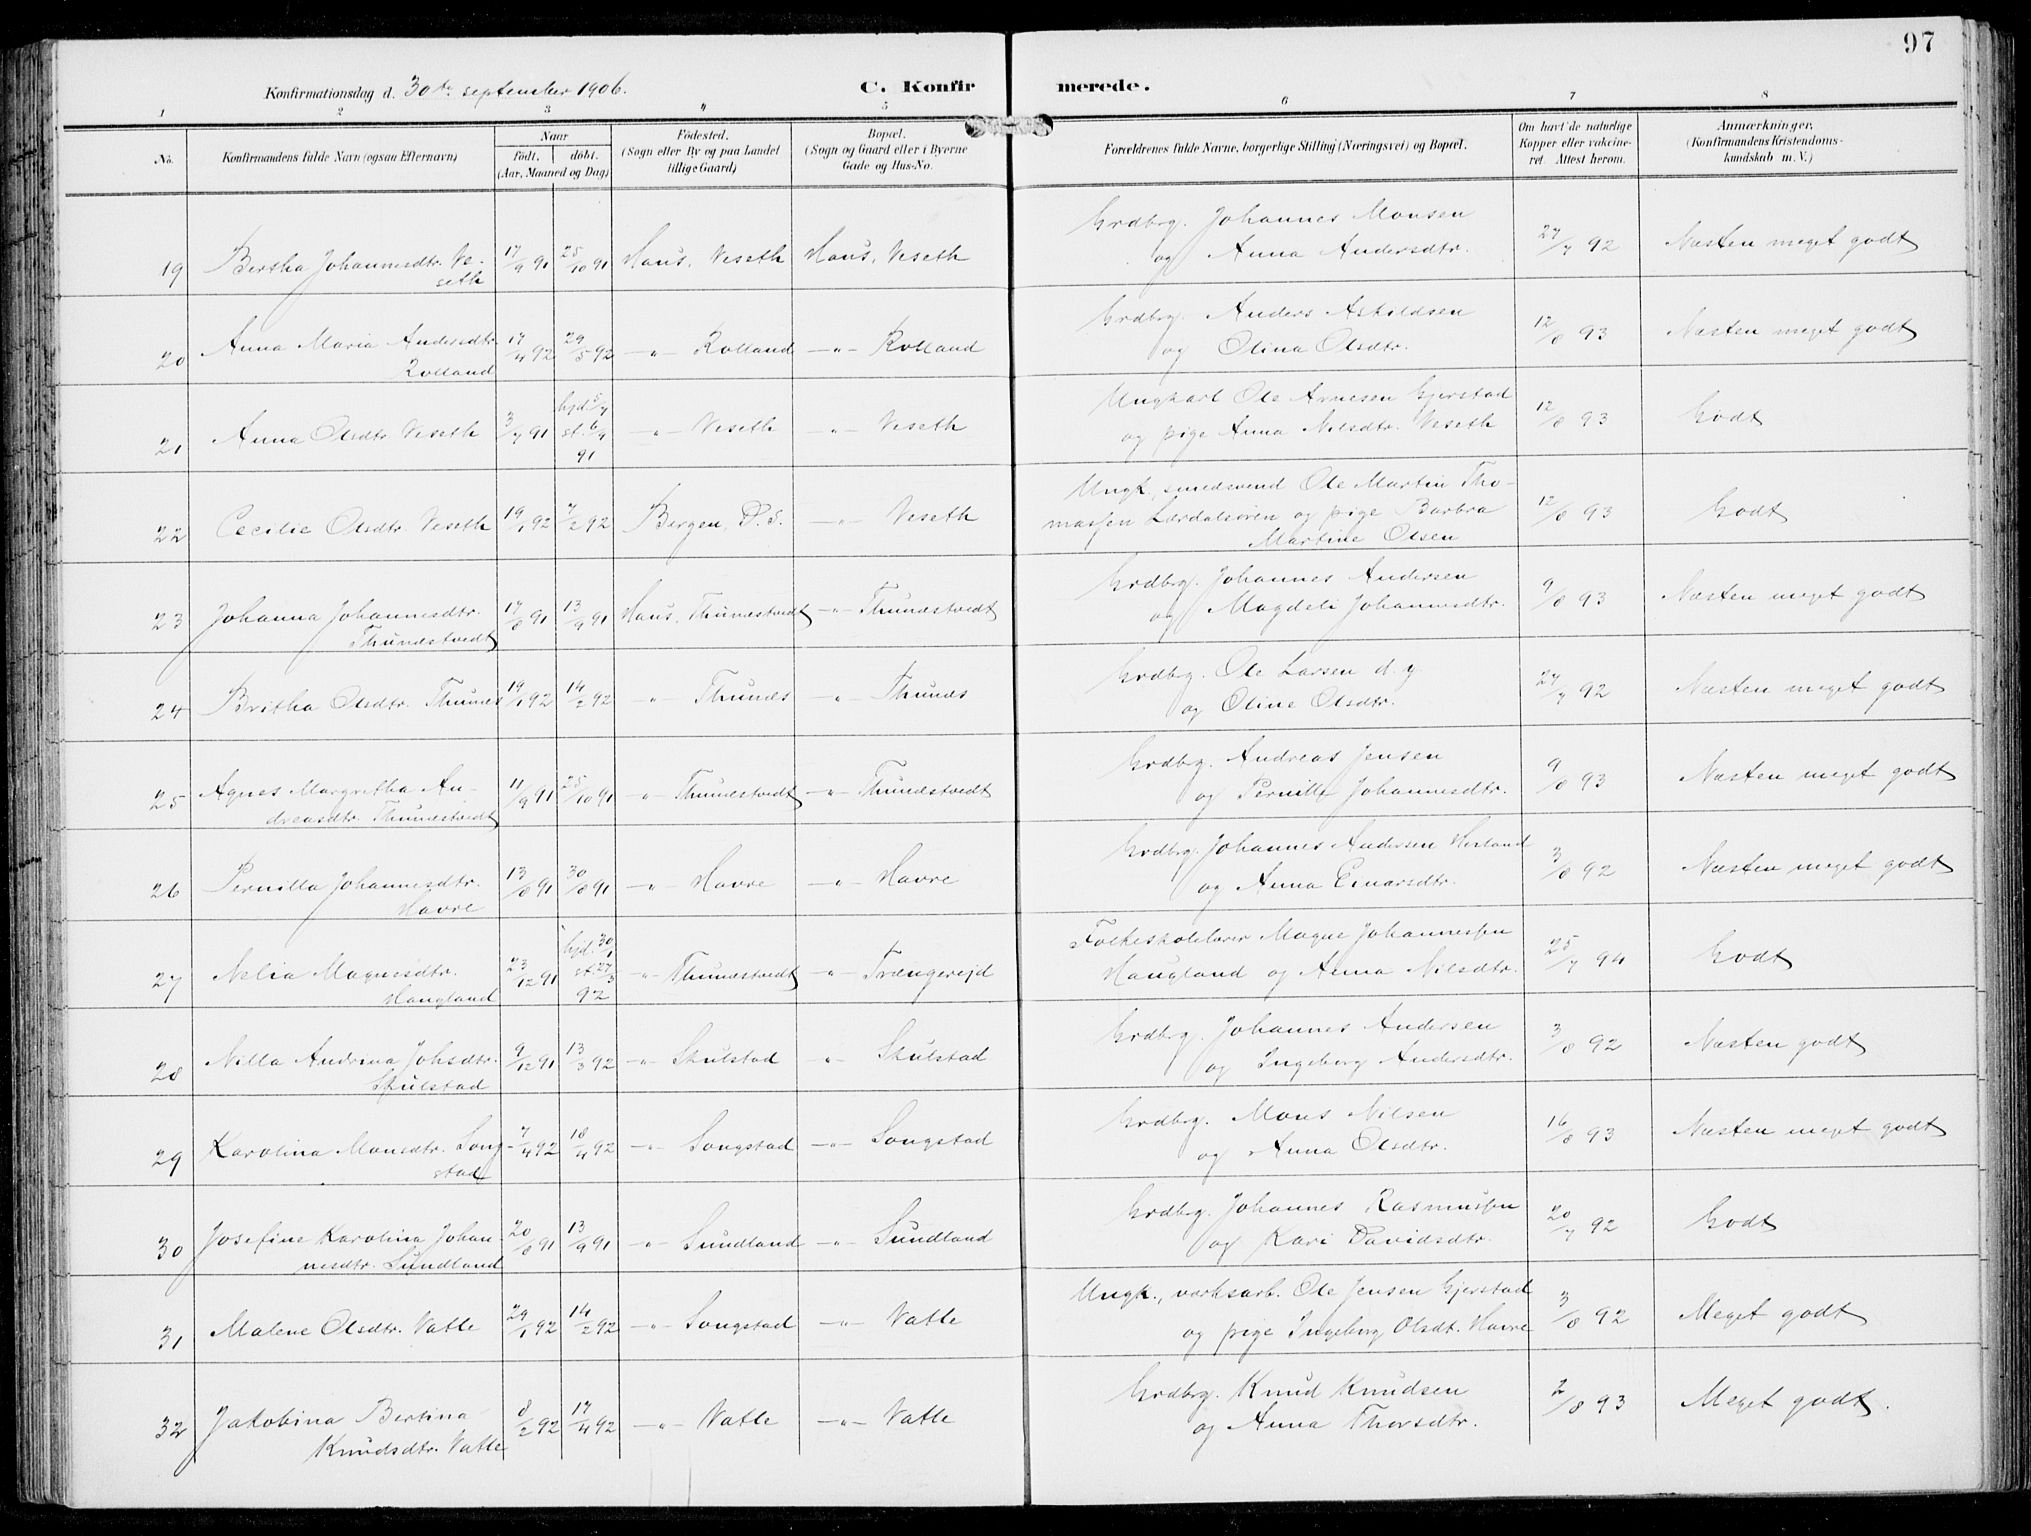 97
Konfirmationsdag d. 30te september 1906.
C. Konfirmerede.
1 2 3 4 5 6 7 8
No.
Konfirmandens fulde Navn (ogsaa Efternavn)
Naar
født. døbt.
(Aar, Maaned og Dag)
Fødested.
(Sogn eller By og paa Landet
tillige Gaard)
Bopæl.
(Sogn og Gaard eller i Byerne
Gade og Hus-No.
Forældrenes fulde Navne, borgerlige Stilling (Næringsvei) og Bopæl.
Om havt de naturlige
Kopper eller vakcine-
ret. Attest herom.
Anmærkninger.
(Konfirmandens Kristendoms-
kundskab m. V.)
19 Bertha Johannesdtr. Ve-
seth
17/9 91 25/10 91 Haus, Veseth Haus, Veseth
Grdbrg. Johannes Monsen
og Anna Andersdtr.
27/7 92 Næsten meget godt
20 Anna Maria Andersdtr.
Rolland
17/4 92 29/5 92 -"- Rolland -"- Rolland
Grdbrg. Anders Askildsen
og Olina Olsdtr.
12/8 93 Næsten meget godt
21 Anna Olsdtr. Veseth
3/7 91 hjd. 5/7
st. 6/9
91
-"- Veseth -"- Veseth
Ungkarl Ole Arnesen Gjerstad
og pige Anna Nilsdtr. Veseth
12/8 93 Godt
22 Cecilie Olsdtr. Veseth
19/1 92 7/2 92 Bergen, D. S. -"- Veseth
Ungk., smedsvend Ole Martin Tho-
massen Lærdalsøren og pige Barbra
Martine Olsen
12/8 93 Godt
23 Johanna Johannesdtr.
Thunæstvedt
17/8 91 13/9 91 Haus, Thunæstvedt -"- Thunæstvedt
Grdbrg. Johannes Andersen
og Magdeli Johannesdtr.
9/8 93 Næsten meget godt
24 Britha Olsdtr. Thunæs
19/1 92 14/2 92 -"- Thunæs -"- Thunæs
Grdbrg. Ole Larsen d. y.
og Oline Olsdtr.
27/7 92 Næsten meget godt
25 Agnes Margretha An-
dreasdtr. Thunæstvedt
11/9 91 25/10 91 -"- Thunæstvedt -"- Thunæstvedt
Grdbrg. Andreas Jensen
og Pernille Johannesdtr.
9/8 93 Næsten meget godt
26 Pernilla Johannesdtr.
Havre
13/8 91 30/8 91 -"- Havre -"- Havre
Grdbrg. Johannes Andersen Herland
og Anna Einarsdtr.
3/8 92 Næsten meget godt
27 Nelia Magnesdtr.
Haugland
23/12 91 hjd. 30/1
st. 27/3
92
-"- Thunæstvedt -"- Trængereid
Folkeskolelærer Magne Johannessen
Haugland og Anna Nilsdtr.
25/7 94 Godt
28 Nilla Andrina Johsdtr.
Skulstad
9/12 91 13/3 92 -"- Skulstad -"- Skulstad
Grdbrg. Johannes Andersen
og Ingeborg Andersdtr.
3/8 92 Næsten godt
29 Karolina Monsdtr. Song-
stad
7/4 92 18/4 92 -"- Songstad -"- Songstad
Grdbrg. Mons Nilsen
og Anna Olsdtr.
16/8 93 Næsten meget godt
30 Josefine Karolina Johan-
nesdtr. Sundland
20/8 91 13/9 91 -"- Sundland -"- Sundland
Grdbrg. Johannes Rasmussen
og Kari Davidsdtr.
20/7 92 Godt
31 Malene Olsdtr. Vatle
29/1 92 14/2 92 -"- Songstad -"- Vatle
Ungk., værksarb. Ole Jensen Gjerstad
og pige Ingeborg Olsdt. Havre
3/8 92 Meget godt
32 Jakobina Bertina
Knudsdtr. Vatle
8/2 92 17/4 92 -"- Vatle -"- Vatle
Grdbrg. Knud Knudsen
og Anna Thorsdtr.
2/8 93 Meget godt.